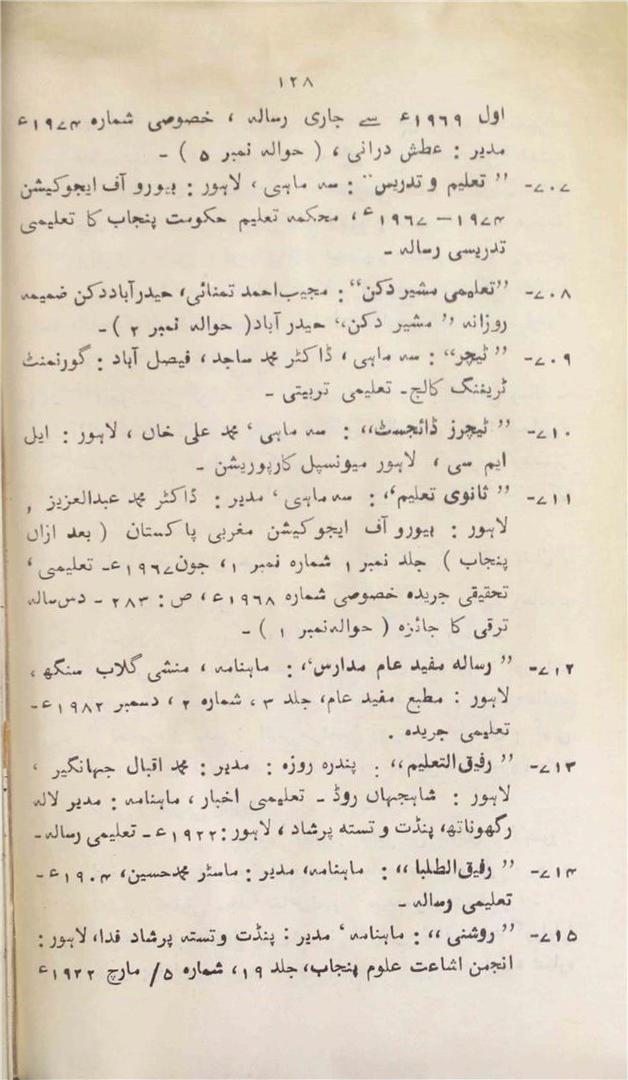 ۱۲۸
اول ۱۹۶۹ء سے جاری رسالہ ، خصوصی شمارہ ۱۹۷۴ء
مدیر : عطش درانی ، ( حوالہ نمبر ۵ ) -
۷۰۷- ” تعلیم و تدریس“ : سہ ماہی ، لاہور : بیورو آف ایجوکیشن
۱۹۷۴ — ۱۹۶۷ء ، محکمہ تعلیم حکومت پنجاب کا تعلیمی
تدریسی رسالہ -
۷۰۸- ”تعلیمی مشیر دکن“ : مجیب احمد تمنائی، حیدرآباددکن ضمیمہ
روزانہ ” مشیر دکن“ حیدر آباد( حوالہ نمبر ۲ ) -
۷۰۹- ” ٹیچر“ : سہ ماہی ، ڈاکٹر محمد ساجد ، فیصل آباد : گورنمنٹ
ٹریننگ کالج - تعلیمی تربیتی -
۷۱۰- ” ٹیچرز ڈائجسٹ“ : سہ ماہی ، محمد علی خاں ، لاہور : ایل
ایم سی ، لاہور میونسپل کارپوریشن -
۷۱۱- ” ثانوی تعلیم“ : سہ ماہی ، مدیر : ڈاکٹر محمد عبدالعزیز ,
لاہور : بیورو آف ایجوکیشن مغربی پاکستان ( بعد ازاں
پنجاب ) جلد نمبر ۱ شمارہ نمبر ۱ ، جون ۱۹۶۷ء - تعلیمی ،
تحقیقی جریدہ خصوصی شمارہ ۱۹۶۸ء ، ص : ۲۸۳ - دس سالہ
ترقی کا جائزہ ( حوالہ نمبر ۱ ) -
۷۱۲- ” رسالہ مفید عام مدارس“ : ماہنامہ ، منشی گلاب سنگھ ،
لاہور : مطبع مفید عام، جلد ۳ ، شمارہ ۲ ، دسمبر ۱۹۸۲ء -
تعلیمی جریدہ .
۷۱۳- ” رفیق التعلیم“ : پندرہ روزہ : مدیر : محمد اقبال جہانگیر ،
لاہور : شاہجہاں روڈ - تعلیمی اخبار ، ماہنامہ : مدیر لالہ
رگھوناتھ، پنڈت و تستہ پرشاد ، لاہور : ۱۹۲۲ء - تعلیمی رسالہ -
۷۱۴- ” رفیق الطلبا “ : ماہنامہ، مدیر : ماسٹر محمدحسین، ۱۹۰۴ء -
تعلیمی رسالہ -
۷۱۵- ” روشنی “ : ماہنامہ ، مدیر : پنڈت وتستہ پرشاد فدا، لاہور :
انجمن اشاعت علوم پنجاب، جلد ۱۹، شمارہ ۵ / مارچ ۱۹۲۲ء